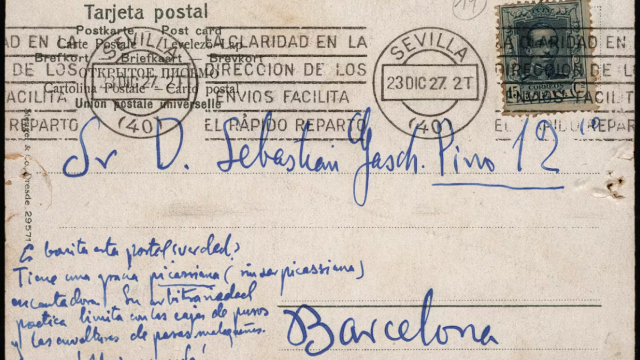 Tarjeta postal
Postkarte Post card
Carte Postale Levelező-Lap
Brefkort Briefkaart Brevkort
ОТКРЫТОЕ ПИСЬМО
Cartolina Postale – Carte postal
Union postale universelle
(40)
SEVILLA
23 DIC 27. 2T
(40)
LA CLARIDAD EN LA
DIRECCION DE LOS
ENVIOS FACILITA
EL RÁPIDO REPARTO
CORREOS
Dresde. 29571
Sr D. Sebastian Gasch. Pino 12
Barcelona
Es bonita esta postal (verdad?
Tiene una gracia picassiana (sin ser picassiana)
encantadora. Su arbitrariedad
poética limita con las cajas de puros
y las envolturas de pasas malagueñas.